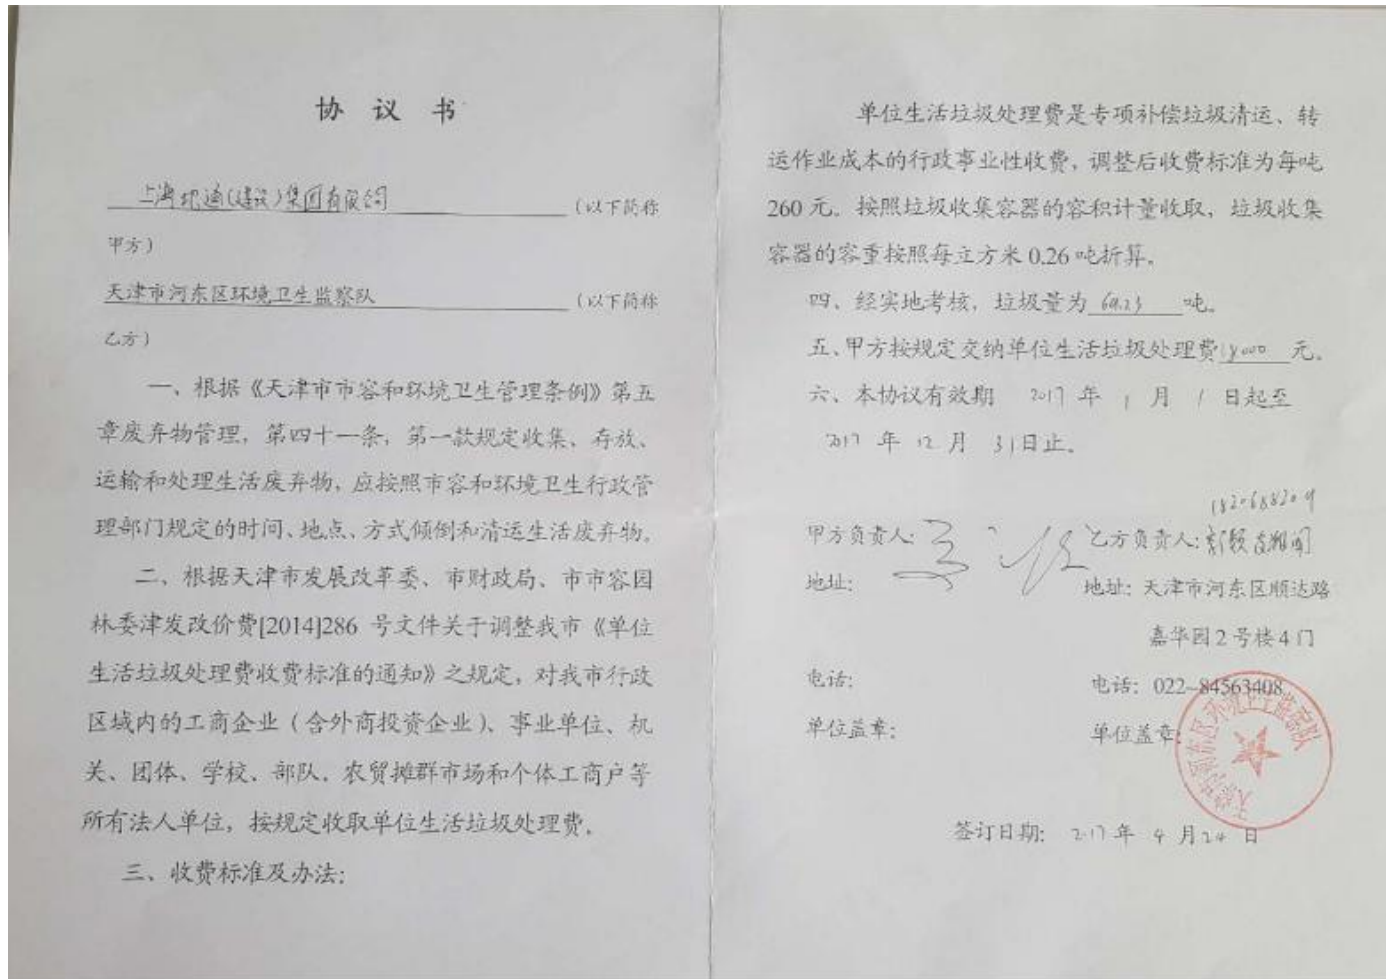 协 议 书
上海地通(建设)集团有限公司 (以下简称
甲方)
天津市河东区环境卫生监察队 (以下简称
乙方)
一、根据《天津市市容和环境卫生管理条例》第五
章废弃物管理，第四十一条，第一款规定收集、存放、
运输和处理生活废弃物，应按照市容和环境卫生行政管
理部门规定的时间、地点、方式倾倒和清运生活废弃物。
二、根据天津市发展改革委、市财政局、市市容园
林委津发改价费[2014]286 号文件关于调整我市《单位
生活垃圾处理费收费标准的通知》之规定，对我市行政
区域内的工商企业（含外商投资企业）、事业单位、机
关、团体、学校、部队、农贸摊群市场和个体工商户等
所有法人单位，按规定收取单位生活垃圾处理费。
三、收费标准及办法：
单位生活垃圾处理费是专项补偿垃圾清运、转
运作业成本的行政事业性收费，调整后收费标准为每吨
260 元。按照垃圾收集容器的容积计量收取，垃圾收集
容器的容重按照每立方米 0.26 吨折算。
四、经实地考核，垃圾量为 69.23 吨。
五、甲方按规定交纳单位生活垃圾处理费 18000 元。
六、本协议有效期 2017 年 1 月 1 日起至
2017 年 12 月 31 日止。
1820688209
甲方负责人： 乙方负责人：
地址： 地址：天津市河东区顺达路
嘉华园 2 号楼 4 门
电话： 电话：022-84563408
单位盖章： 单位盖章：
天津市河东区环境卫生监察队
签订日期： 2017 年 4 月 24 日